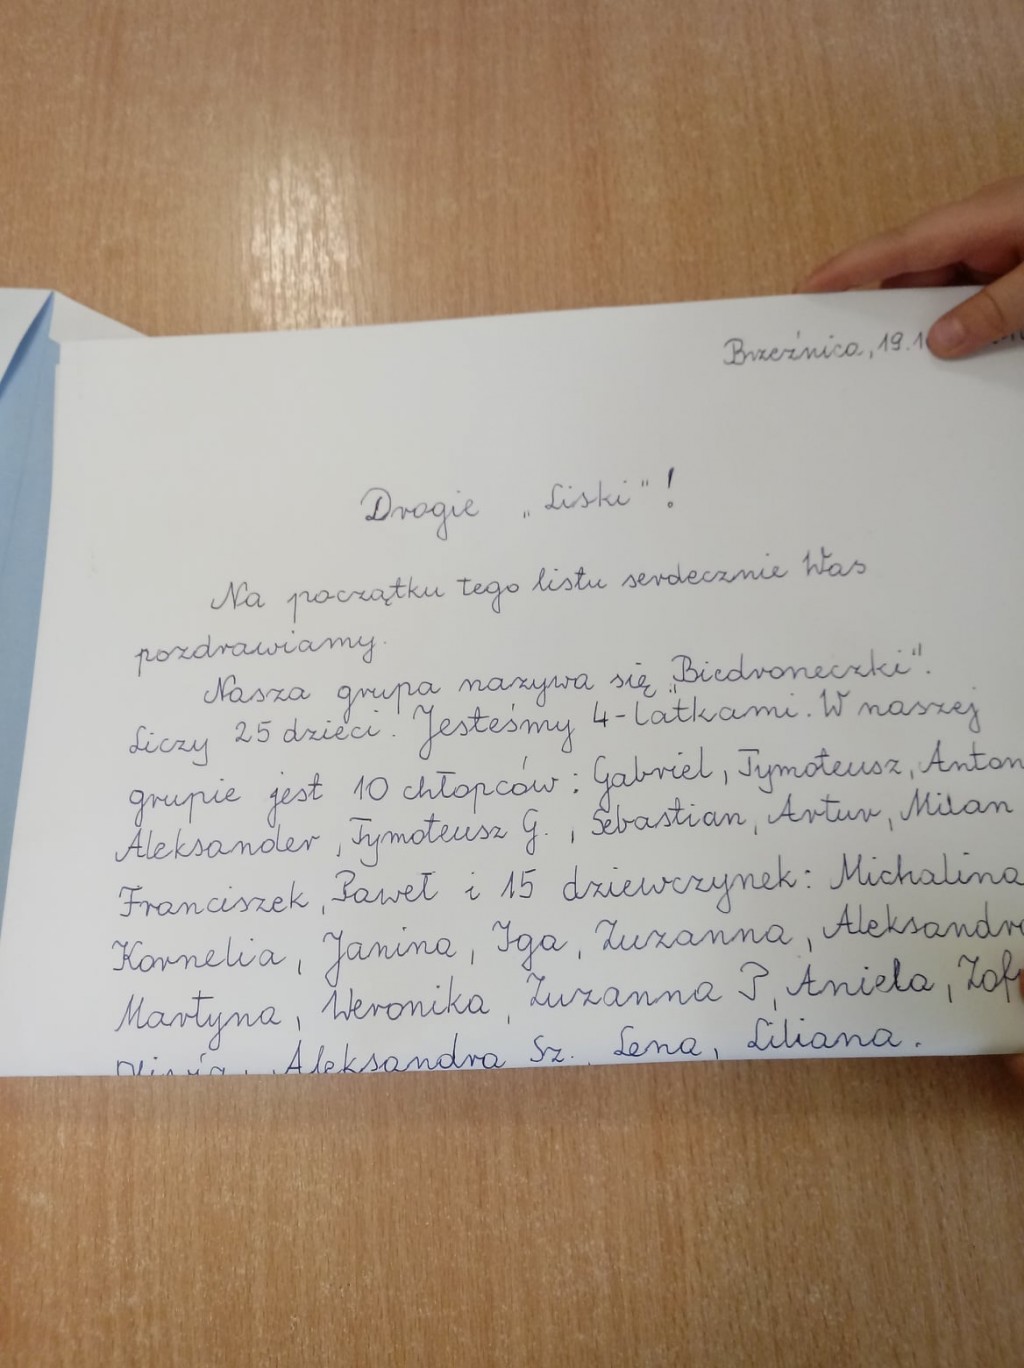 Brzeźnica, 19.1
Drogie „Liski"!
Na początku tego listu serdecznie Was
pozdrawiamy.
Nasza grupa nazywa się „Biedroneczki".
Liczy 25 dzieci. Jesteśmy 4-latkami. W naszej
grupie jest 10 chłopców: Gabriel, Tymoteusz, Anton
Aleksander, Tymoteusz G., Sebastian, Artur, Milan
Franciszek, Paweł i 15 dziewczynek: Michalina
Kornelia, Janina, Iga, Zuzanna, Aleksandra
Martyna, Weronika, Zuzanna P, Aniela, Zof
Oliwia, Aleksandra Sz., Lena, Liliana.